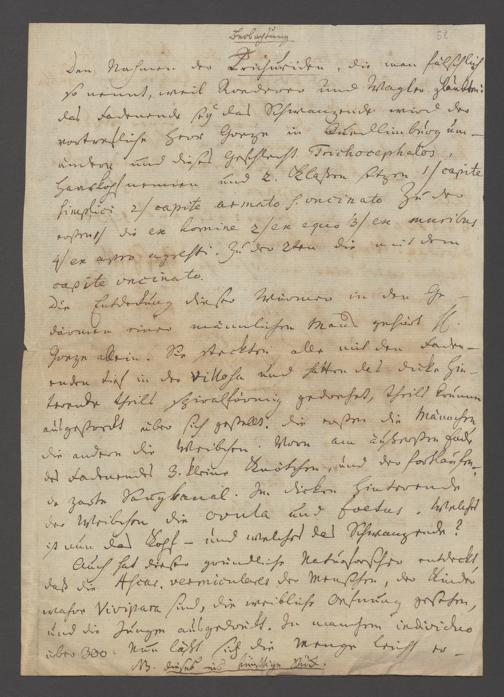 Beobachtung
52
Den Nahmen der Trichuriden, die man fälschlich
so nennt, weil Roederer und Wagler glaubten
das Fadenende sey das Schwanzende wird der
vortrefliche Herr Goeze in Quedlinburg um-
ändern und dieses Geschlecht Trichocephalos,
Haarkopf nennen und 2. Classen setzen 1/ capite
simplici 2/ capite armato s. uncinato Zu der
ersten die ex homine 2/ ex equo 3/ ex muribus
4/ ex apro agresti. Zu der 2ten die mit dem
capite uncinato.
Die Entdeckung dieser Würmer in den Ge-
därmen einer männlichen Maus gehört H.
Goeze allein. Sie steckten alle mit den Faden-
enden tief in der Villosa und hatten das dicke Hin-
terende theils spiralförmig gedrehet, theils krumm
ausgestreckt über sich gestellt. die ersten die Männchen
die andern die Weibchen. Vorn am äußersten Ende
des Fadenendes 3. kleine Knötchen, und der fortlaufen-
de zarte Saugkanal. Im dicken Hinterende
der Weibchen die ovula und foetus. Welches
ist nun das Kopf - und welches das Schwanzende?
Auch hat dieser gründliche Naturforscher entdeckt,
daß die Ascar. vermiculares der Menschen, der Kinder
wahre Vivipara sind, die weibliche Oefnung gesehen,
und die Jungen ausgedrückt. In manchem individuo
über 300. Nun läßt sich die Menge leicht er-
NB. dieses ins künftige Stück.